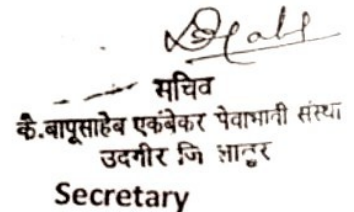 सचिव
कै.बापूसाहेब एकंबेकर सेवाभावी संस्था
उदगीर जि लातुर
Secretary